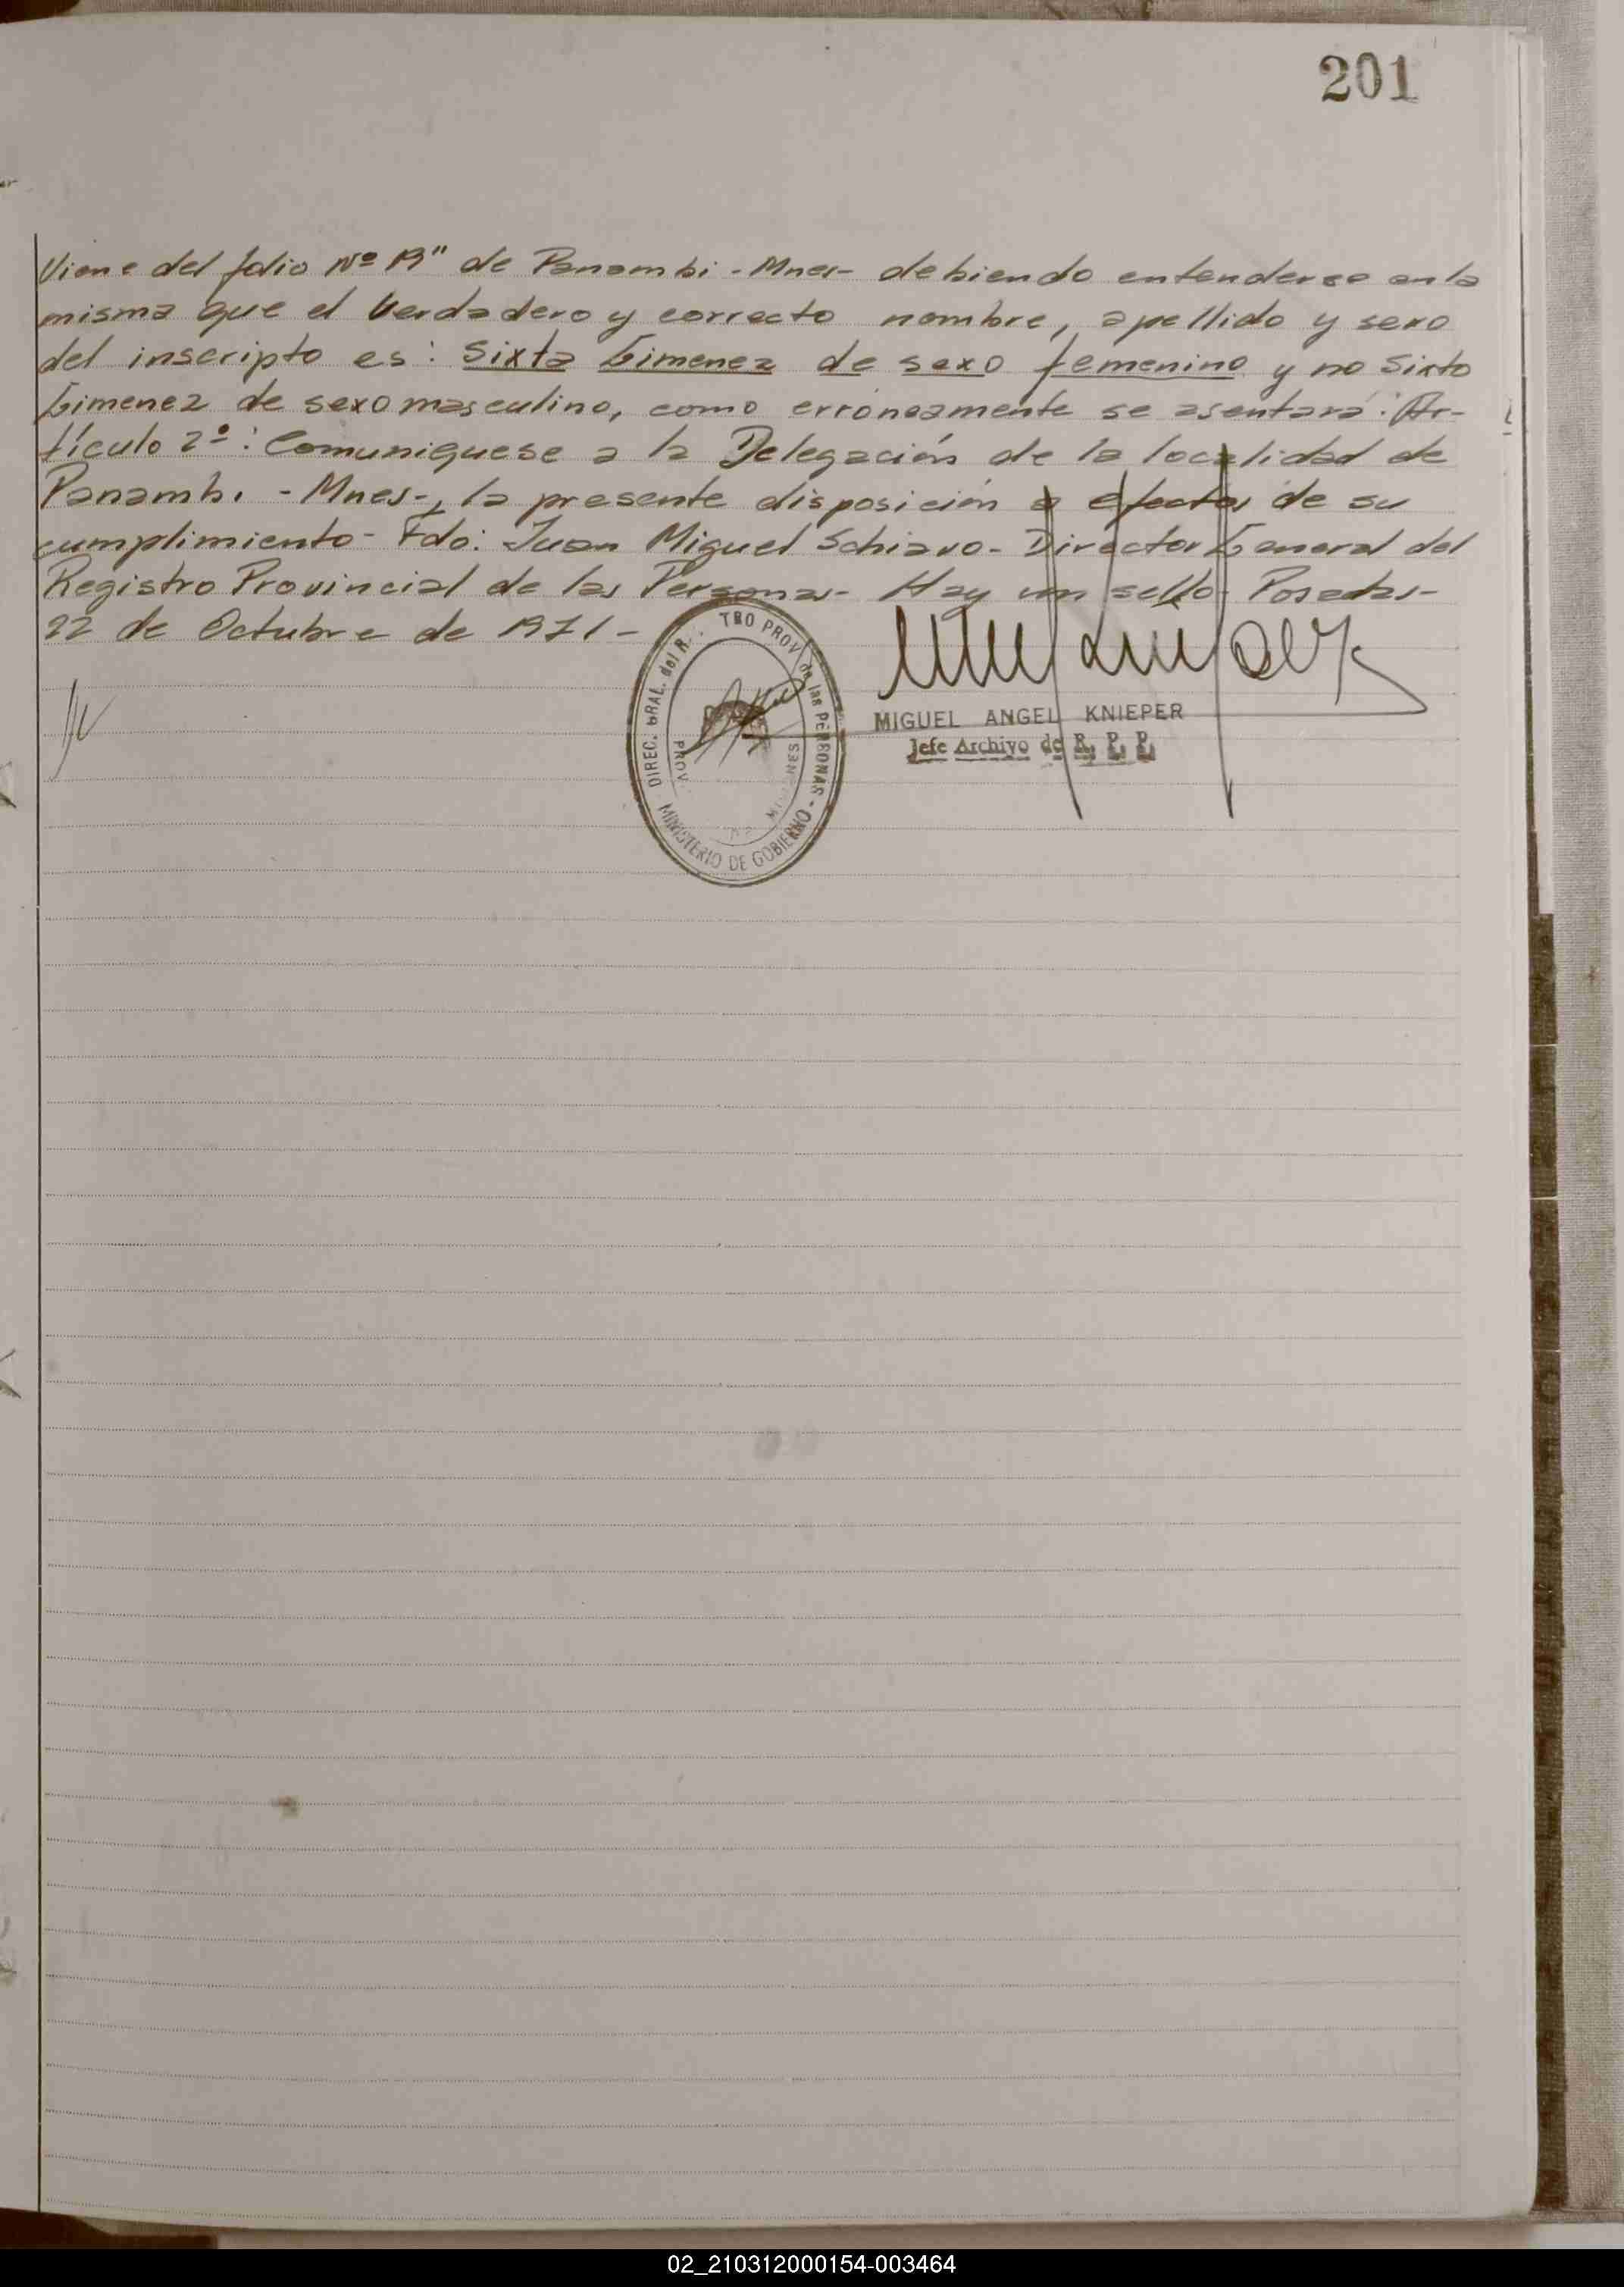 201
Viene del folio Nº 19" de Panambi - Mnes - debiendo entenderse en la
misma que el verdadero y correcto nombre, apellido y sexo
del inscripto es: Sixta Gimenez de sexo femenino y no Sixto
Gimenez de sexo masculino, como erróneamente se asentara". Ar-
tículo 2º: Comuniquese a la Delegación de la localidad de
Panambi - Mnes -, la presente disposición a efectos de su
cumplimiento - Fdo: Juan Miguel Schiavo - Director General del
Registro Provincial de las Personas - Hay un sello - Posadas -
22 de Octubre de 1971 -
DIREC. GRAL. del R. TRO PROV. de las PERSONAS -
MINISTERIO DE GOBIERNO -
PROV. MISIONES
MIGUEL ANGEL KNIEPER
Jefe Archivo de R. P. P.
02_210312000154-003464